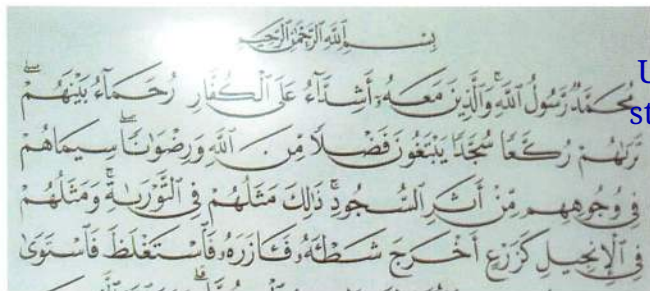 بِسْمِ ٱللَّهِ ٱلرَّحْمَٰنِ ٱلرَّحِيمِ
مُحَمَّدٌ رَّسُولُ ٱللَّهِ ۚ وَٱلَّذِينَ مَعَهُۥٓ أَشِدَّآءُ عَلَى ٱلْكُفَّارِ رُحَمَآءُ بَيْنَهُمْ ۖ
تَرَىٰهُمْ رُكَّعًا سُجَّدًا يَبْتَغُونَ فَضْلًا مِّنَ ٱللَّهِ وَرِضْوَٰنًا ۖ سِيمَاهُمْ
فِى وُجُوهِهِم مِّنْ أَثَرِ ٱلسُّجُودِ ۚ ذَٰلِكَ مَثَلُهُمْ فِى ٱلتَّوْرَىٰةِ ۚ وَمَثَلُهُمْ
فِى ٱلْإِنجِيلِ كَزَرْعٍ أَخْرَجَ شَطْـَٔهُۥ فَـَٔازَرَهُۥ فَٱسْتَغْلَظَ فَٱسْتَوَىٰ
U
st